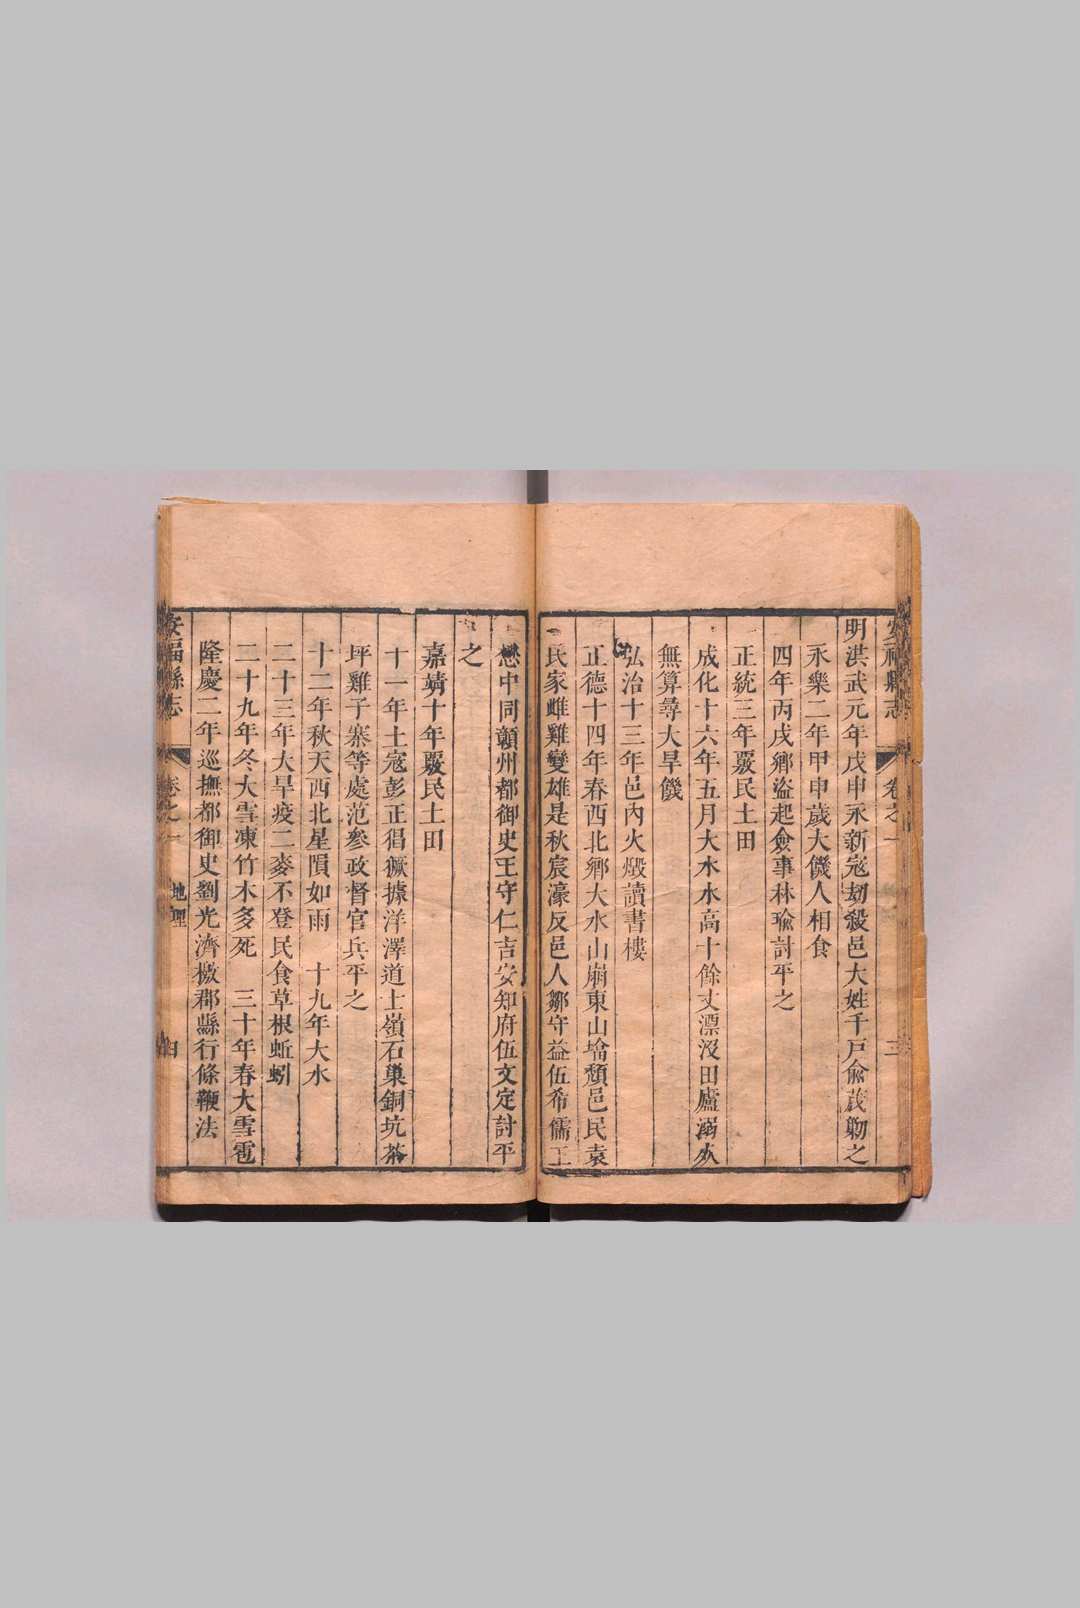 安福縣志 卷之一 三
明洪武元年戊申永新寇刼殺邑大姓千戸俞茂勦之
永樂二年甲申歲大饑人相食
四年丙戌鄉盜起僉事林瑜討平之
正統三年覈民土田
成化十六年五月大水水高十餘丈漂没田廬溺人
無算尋大旱饑
弘治十三年邑內火燬讀書樓
正德十四年春西北鄉大水山崩東山墖頽邑民袁
氏家雌雞變雄是秋宸濠反邑人鄒守益伍希儒王
懋中同贛州都御史王守仁吉安知府伍文定討平
之
嘉靖十年覈民土田
十一年土寇彭正倡獗據洋澤道士嶺石巢銅坑茶
坪雞子寨等處范參政督官兵平之
十二年秋天西北星隕如雨 十九年大水
二十三年大旱疫二麥不登民食草根蚯蚓
二十九年冬大雪凍竹木多死 三十年春大雪雹
隆慶二年巡撫都御史劉光濟檄郡縣行條鞭法
安福縣志 卷之一 地理 四